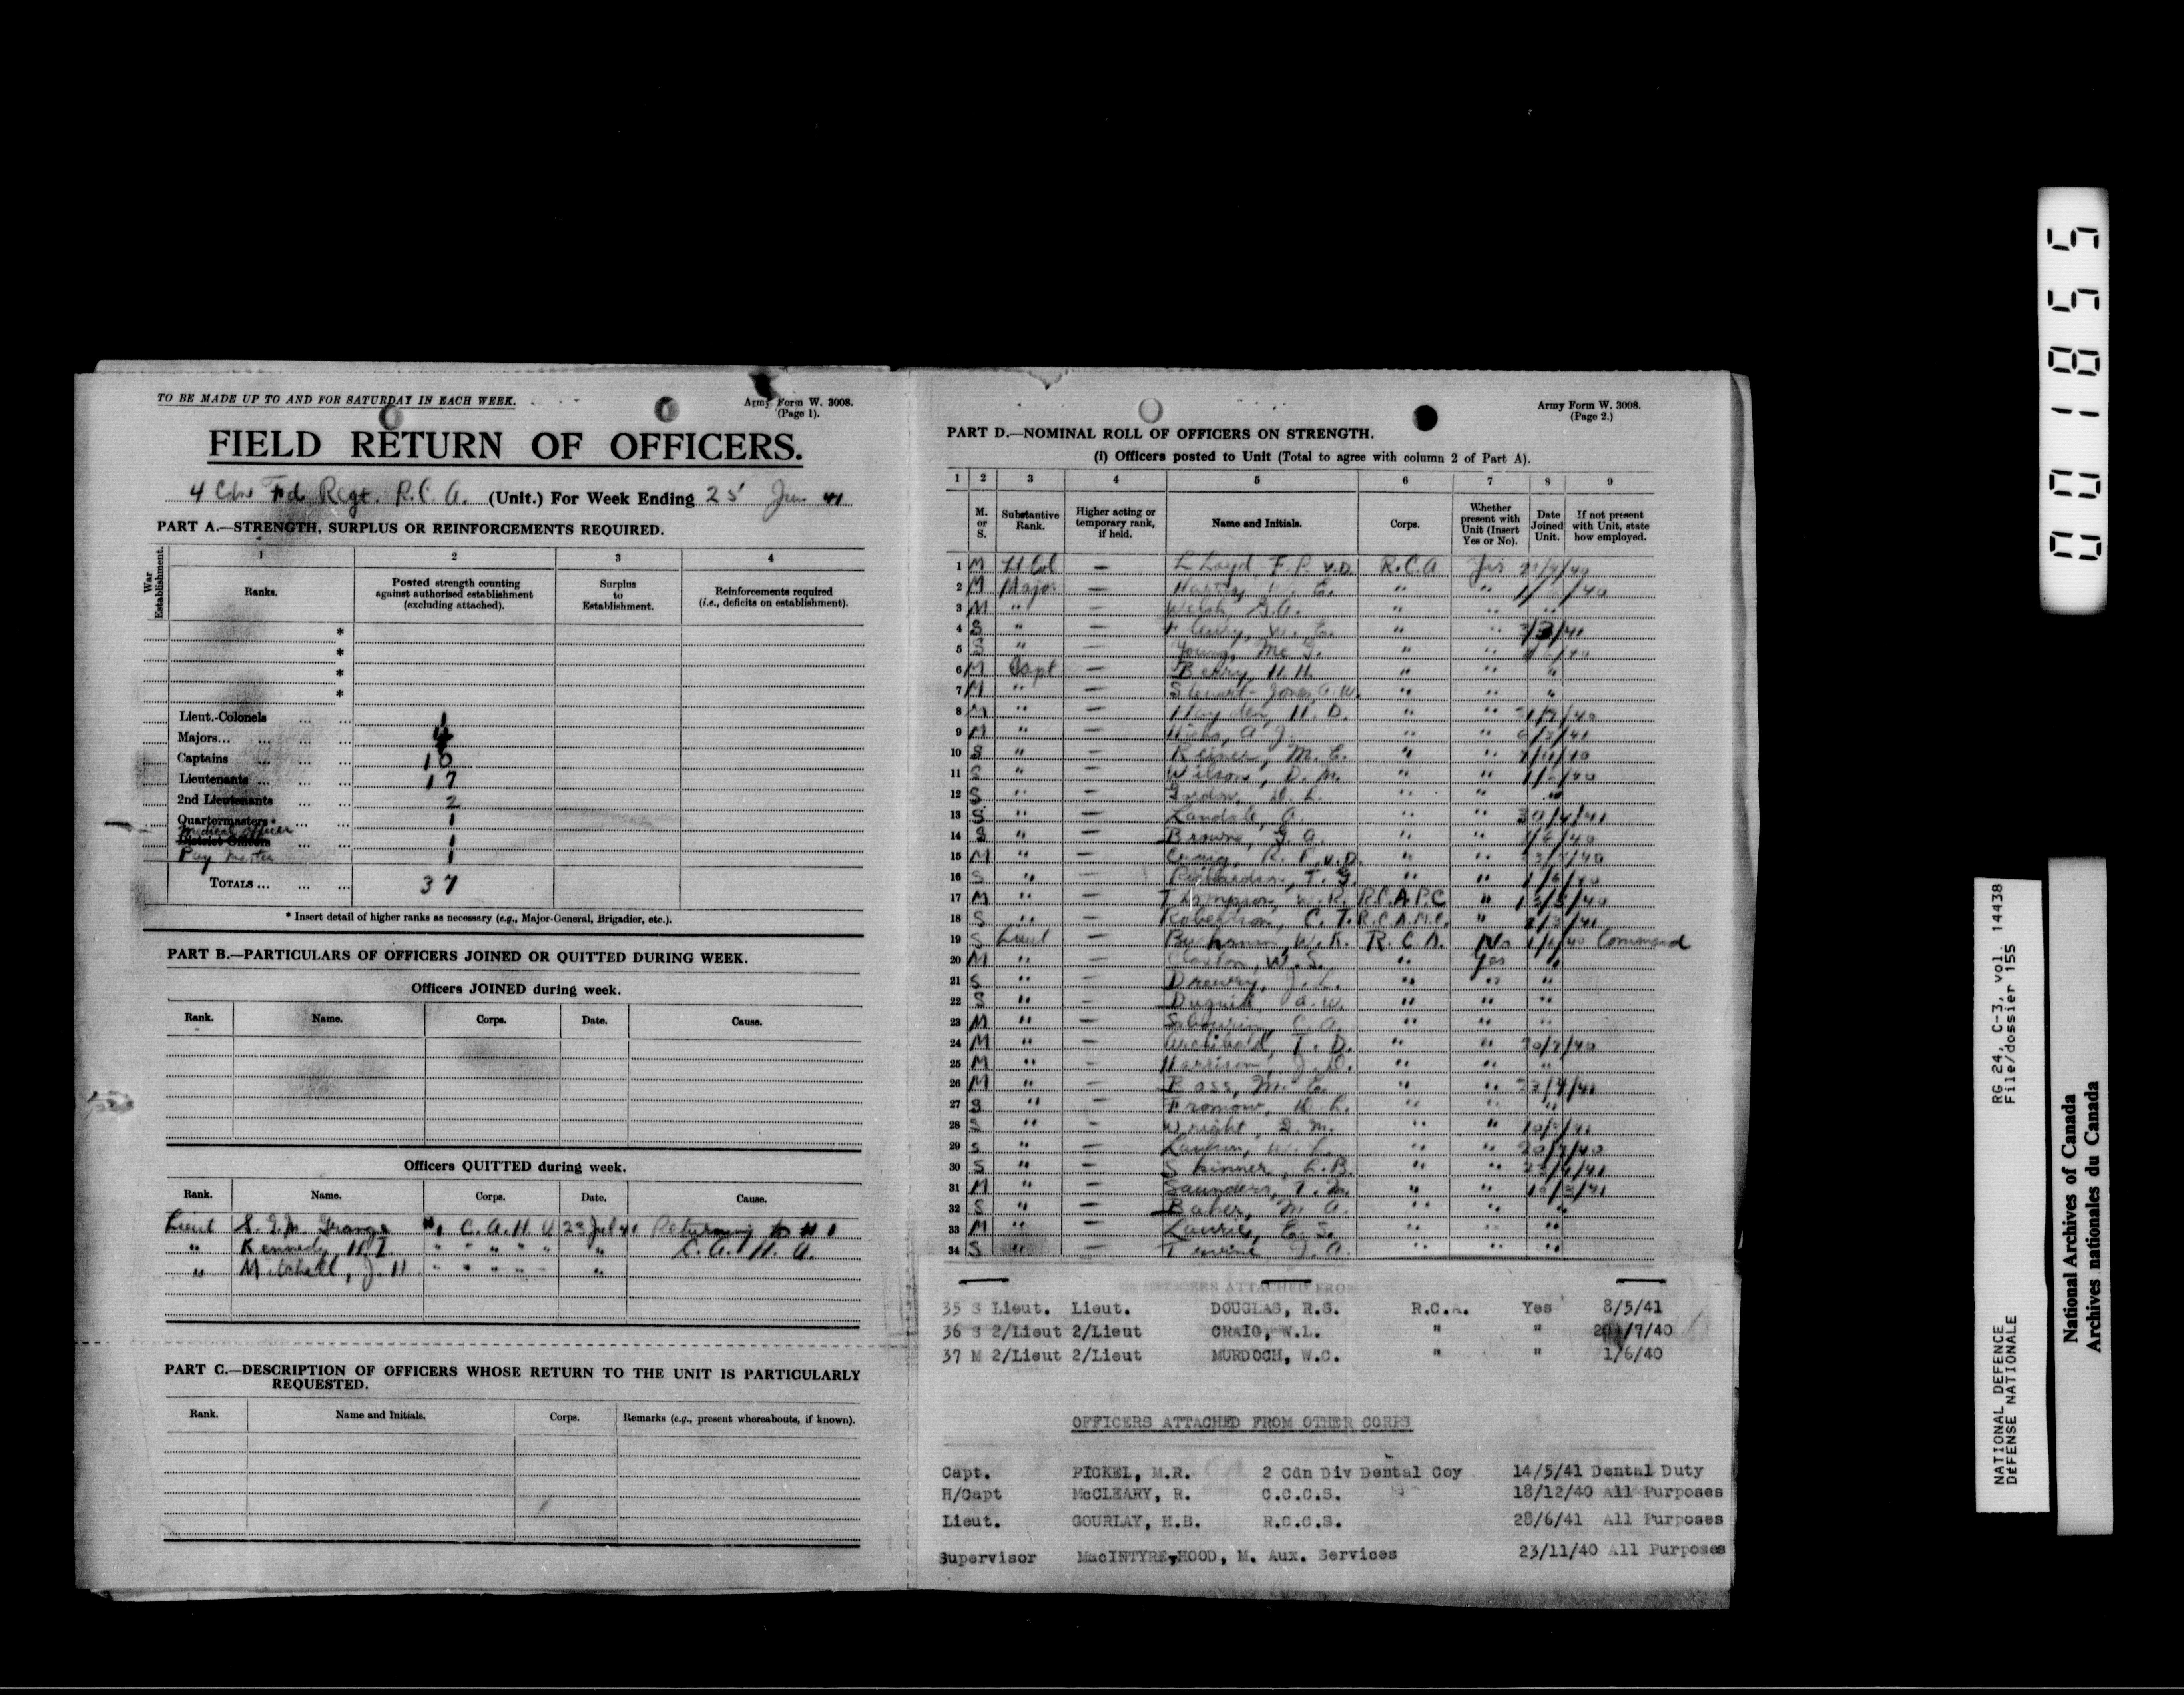 TO BE MADE UP TO AND FOR SATURDAY IN EACH WEEK.
Army Form W. 3008.
(Page 1).
FIELD RETURN OF OFFICERS.
4 Cdn Fd Regt. R.C.A. (Unit.) For Week Ending 25 41
PART A.—STRENGTH, SURPLUS OR REINFORCEMENTS REQUIRED.
War Establishment.
1 2 3 4
Ranks.
Posted strength counting against authorised establishment (excluding attached).
Surplus to Establishment.
Reinforcements required (i.e., deficits on establishment).
*
*
*
*
Lieut.-Colonels ... ... 1
Majors... ... ... ... 4
Captains ... ... ... 10
Lieutenants ... ... ... 17
2nd Lieutenants ... ... 2
Quartermasters ... ... 1
Medical Officer
District Officers ... ... 1
Pay Master 1
TOTALS ... ... ... 37
* Insert detail of higher ranks as necessary (e.g., Major-General, Brigadier, etc.).
PART B.—PARTICULARS OF OFFICERS JOINED OR QUITTED DURING WEEK.
Officers JOINED during week.
Rank. Name. Corps. Date. Cause.
Officers QUITTED during week.
Rank. Name. Corps. Date. Cause.
Lieut S. G.M. Grange #1 C.A.H.U 23 July 41 Returning to #1
" Kennedy, H.I. " " " " " " C.A.H.U.
" Mitchell, J.H " " " " " "
PART C.—DESCRIPTION OF OFFICERS WHOSE RETURN TO THE UNIT IS PARTICULARLY REQUESTED.
Rank. Name and Initials. Corps. Remarks (e.g., present whereabouts, if known).
Army Form W. 3008.
(Page 2.)
PART D.—NOMINAL ROLL OF OFFICERS ON STRENGTH.
(i) Officers posted to Unit (Total to agree with column 2 of Part A).
1 2 3 4 5 6 7 8 9
M. or S.
Substantive Rank.
Higher acting or temporary rank, if held.
Name and Initials.
Corps.
Whether present with Unit (Insert Yes or No).
Date Joined Unit.
If not present with Unit, state how employed.
1 M Lt Col — Lloyd, F.P. V.D. R.C.A Yes
2 M Major — Harris, E. " " /40
3 M " — Welsh G.A. " " "
4 S " — " " /3/41
5 S " — Young, Mc G. " " /40
6 M Capt — Berry, H.H. " " "
7 M " — Stewart-Jones, A.W. " " "
8 M " — Hayden, H.D. " " /40
9 M " — Hicks, A.J. " " /41
10 S " — Reiner, M.E. " " /40
11 S " — Wilson, D.M. " " /40
12 S " — D.L. " " "
13 S " — Landale, A. " " /41
14 S " — Browne, G.A. " " 1/6/40
15 M " — Craig, R.F. V.D. " " /40
16 S " — Richardson, T.G. " " 1/6/40
17 M " — Thompson, W.R. R.C.A.P.C " /40
18 S " — Robertson, C.T. R.C.A.M.C. " /41
19 S Lieut — Buchanan, W.K. R.C.A. No 1/6/40 Command
20 M " — Claxton, W.S. " Yes "
21 S " — Drewry, J.L. " " "
22 S " — Duguid A.W. " " "
23 M " — Sabourin, C.A. " " "
24 M " — Archibald, T.D. " " 20/7/40
25 M " — Harrison, J.D. " " "
26 M " — Bass, M.E. " " /4/41
27 S " — Fromow, D.L. " " "
28 S " — Wright, G.M. " " 10/ /41
29 S " — W.L. " " 20/7/40
30 S " — Skinner, L.B. " " /41
31 M " — Saunders, T.M. " " 10/3/41
32 S " — Baker, M.A. " " "
33 M " — Laurie, E.S. " " "
34 S " — J.A. " " "
35 S Lieut. Lieut. DOUGLAS, R.S. R.C.A. Yes 8/5/41
36 S 2/Lieut 2/Lieut CRAIG, W.L. " " 20/7/40
37 M 2/Lieut 2/Lieut MURDOCH, W.C. " " 1/6/40
OFFICERS ATTACHED FROM OTHER CORPS
Capt. PICKEL, M.R. 2 Cdn Div Dental Coy 14/5/41 Dental Duty
H/Capt McCLEARY, R. C.C.C.S. 18/12/40 All Purposes
Lieut. GOURLAY, H.B. R.C.C.S. 28/6/41 All Purposes
Supervisor MacINTYRE-HOOD, M. Aux. Services 23/11/40 All Purposes
001855
RG 24, C-3, vol. 14438
File/dossier 155
NATIONAL DEFENCE
DÉFENSE NATIONALE
National Archives of Canada
Archives nationales du Canada